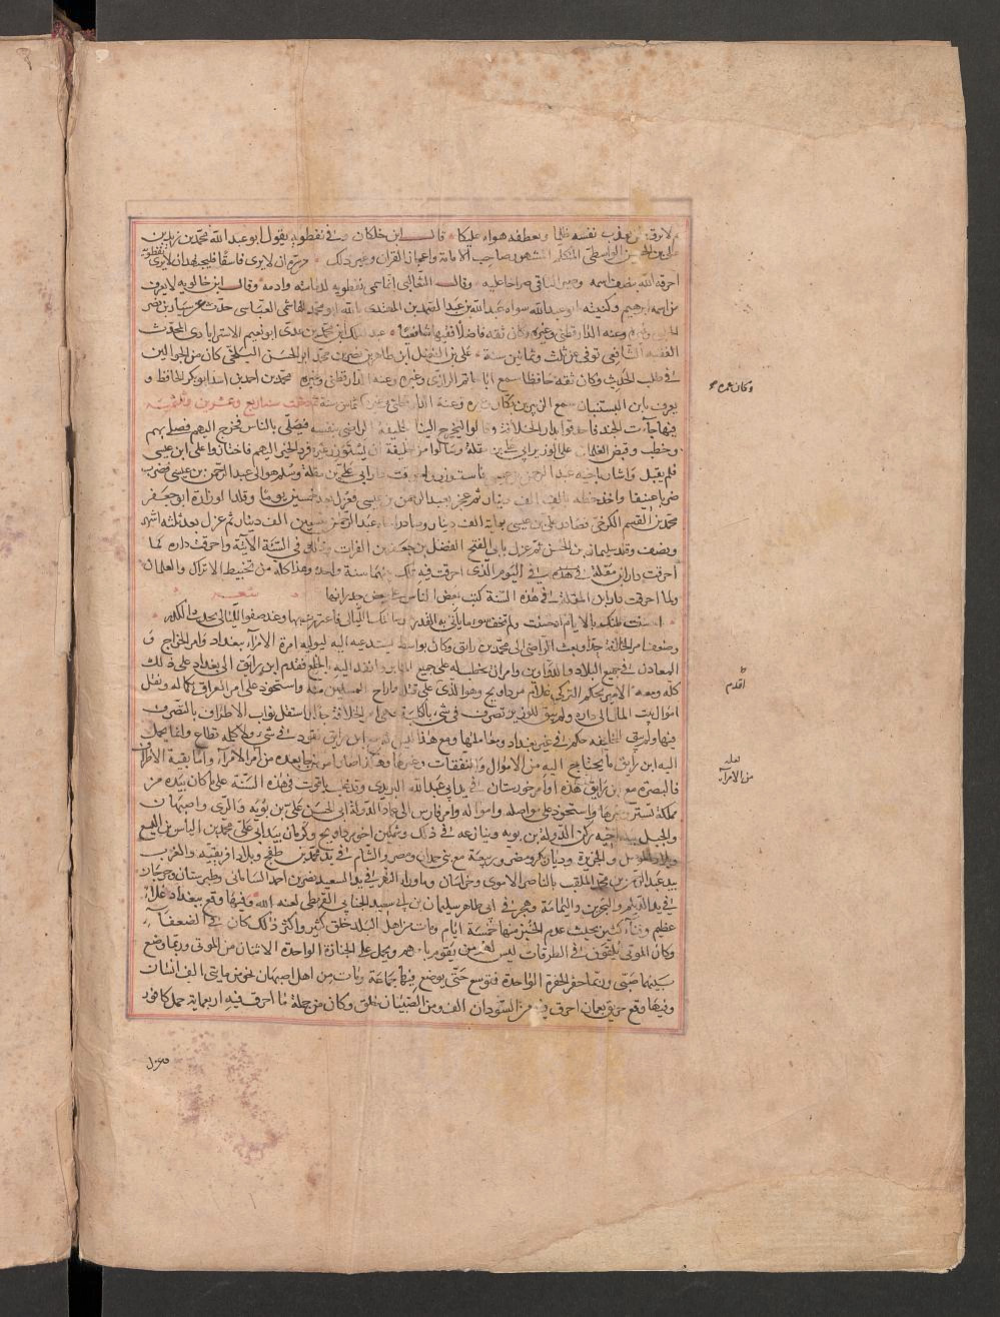 نفسه ظلما ويعطفه هواه عليكا قال ابن خلكان وفي نفطويه يقول ابو عبد الله محمد بن زيد بن
علي بن الحسين الواسطي المتكلم المشهور صاحب الامامة واعجاز القران وغير ذلك من سره ان لا يرى فاسقا فليجتهد ان لا يرى نفطويه
احرقه الله بنصف اسمه وصير الباقي صراخا عليه وقال الثعالبي انما سمي نفطويه لدمامته وادمه وقال ابن خالويه لا يعرف
من اسمه ابراهيم وكنيته ابو عبد الله سواه عبد الله بن عبد الصمد بن المهتدي بالله ابو محمد الهاشمي العباسي حدث عن سيار بن نصر
الحلبي وغيره وعنه الدارقطني وغيره وكان ثقة فاضلا فقيها شافعيا عبد الملك بن محمد بن عدي ابو نعيم الاسترابادي المحدث
الفقيه الشافعي توفي عن ثلث وثمانين سنة علي بن الفضل بن طاهر بن نصر بن محمد ابو الحسن البلخي كان من الجوالين
في طلب الحديث وكان ثقة حافظا سمع ابا حاتم الرازي وغيره وعنه الدارقطني وغيره محمد بن احمد بن اسد ابو بكر الحافظ و
يعرف بابن البستنبان سمع الزبير بن بكار وغيره وعنه الدارقطني وغيره ثم دخلت سنة اربع وعشرين وثلثمائة
فيها جآءت الجند فاحدقوا بدار الخلافة وقالوا ليخرج الينا الخليفة الراضي بنفسه فيصلي بالناس فخرج اليهم فصلى بهم
وخطب وقبض الغلمان على الوزير ابي علي بن مقلة وسألوا من الخليفة ان يستوزر غيره فرد الخيرة اليهم فاختاروا علي بن عيسى
فلم يقبل واشار باخيه عبد الرحمن بن عيسى فاستوزره واحرقت دار ابي علي بن مقلة وسلم هو الى عبد الرحمن بن عيسى فضرب
ضربا عنيفا واخذ خطه بالف الف دينار ثم عجز عبد الرحمن بن عيسى فعزل بعد خمسين يوما وقلد الوزارة ابو جعفر
محمد بن القسم الكرخي فصادر علي بن عيسى بمائة الف دينار وصادر اخاه عبد الرحمن بسبعين الف دينار ثم عزل بعد ثلثة اشهر
ونصف وقلد سليمان بن الحسن ثم عزل بابي الفتح الفضل بن جعفر بن الفرات وذلك في السنة الآتية واحرقت داره كما
احرقت دار ابن مقلة في هذه في اليوم الذي احرقت فيه تلك بينهما سنة واحدة وهذا كله من تخبيط الاتراك والغلمان
ولما احرقت دار ابن مقلة في هذه السنة كتب بعض الناس على بعض جدرانها شعر
احسنت ظنك بالايام اذ حسنت ولم تخف سوء ما يأتي به القدر وسالمتك الليالي فاغتررت بها وعند صفو الليالي يحدث الكدر
وضعف امر الخلافة جدا وبعث الراضي الى محمد بن رائق وكان بواسط يستدعيه اليه ليوليه امرة الامرآء ببغداد وامر الخراج و
المعادن في جميع البلاد والدواوين وامر ان يخطب له على جميع المنابر وانفذ اليه بالخلع فقدم ابن رائق الى بغداد على ذلك
كله ومعه الامير بجكم التركي غلام مرداويج وهو الذي على قتل مرداويج واراح المسلمين منه واستحوذ على امر العراق بكماله ونقل
اموال بيت المال الى داره ولم يبق للوزير تصرف في شيء بالكلية ووهى امر الخلافة جدا واستقل نواب الاطراف بالتصرف
فيها ولم يبق للخليفة حكم في غير بغداد ومعاملتها ومع هذا ليس له مع ابن رائق نفوذ في شيء ولا كلمة تطاع وانما يحمل
اليه ابن رائق ما يحتاج اليه من الاموال والنفقات وغيرها وهكذا صار امر من جا بعده من امر الامرآء واما بقية الاطراف
فالبصرة مع ابن رائق هذه وامر خوزستان في يد ابي عبد الله البريدي وقد غلب ياقوت في هذه السنة على ما كان بيده من
مملكة تستر وغيرها واستحوذ على حواصله وامواله وامر فارس الى عماد الدولة ابي الحسن علي بن بويه والري واصبهان
والجبل بيد اخيه ركن الدولة بن بويه وينازعه في ذلك وشمكير اخو مرداويج وكرمان بيد ابي علي محمد بن الياس بن اليسع
وبلاد الموصل والجزيرة وديار بكر ومضر وربيعة مع بني حمدان ومصر والشام في يد محمد بن طغج وبلاد افريقية والمغرب
بيد عبد الرحمن بن محمد الملقب بالناصر الاموي وخراسان وما وراء النهر في يد السعيد نصر بن احمد الساماني وطبرستان وجرجان
في يد الديلم والبحرين واليمامة وهجر في ابي طاهر سليمان بن ابي سعيد الجنابي القرمطي لعنه الله وفيها وقع ببغداد غلآء
عظيم وفنآء كثير بحيث عدم الخبز منها خمسة ايام ومات من اهل البلد خلق كثير واكثر ذلك كان في الضعفآء
وكان الموتى يلقون في الطرقات ليس لهم من يقوم بامرهم ويحمل على الجنازة الواحدة الاثنان من الموتى وربما وضع
بينهما صبي وربما حفر الحفرة الواحدة فتوسع حتى يوضع فيها جماعة ومات من اهل اصبهان نحو من مايتي الف انسان
وفيها وقع حريق بعمان احرق فيه من السودان الف ومن البيضان خلق وكان من جملة ما احرق فيه اربعماية حمل كافور
وكان ثمره
اقدم
لعله
من الامرآء
وعزل